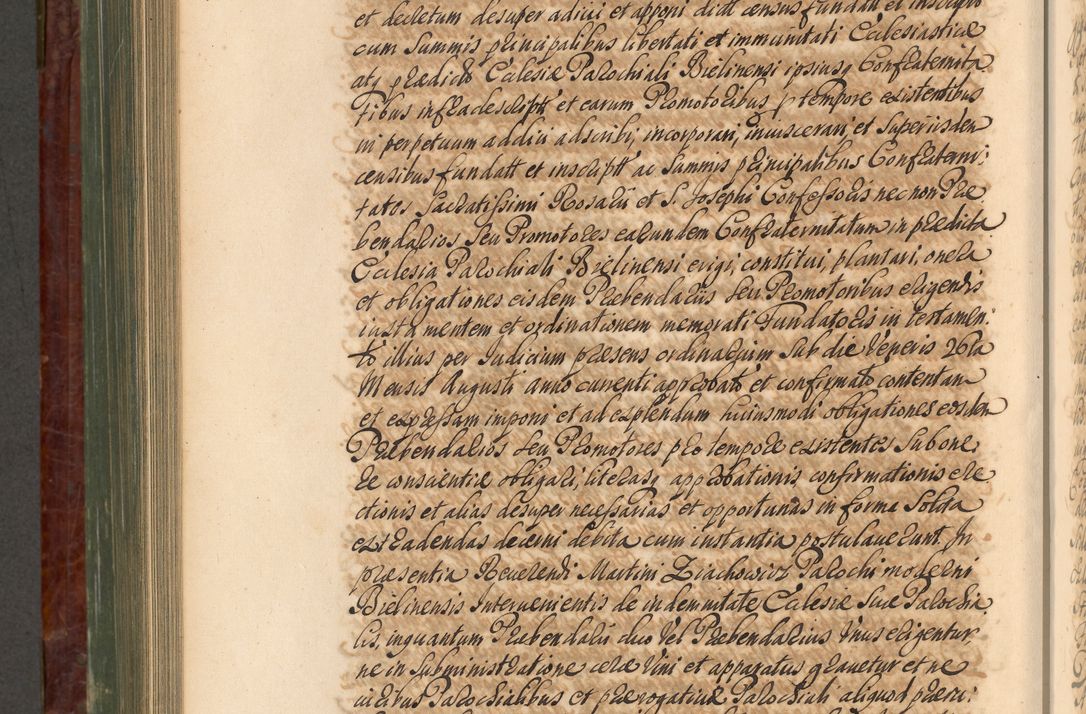 et decretum desuper adiici et apponi dictt census fundatt et inscriptt
cum Summis principalibus libertati et immunitati Ecclesiasticæ
atq prædictæ Ecclesiæ Parochiali Bielinensi ipsiusq Confraternita
tibus infrascriptt et earum Promotoribus p tempore existentibus
in perpetuum addici adscribi, incorporari, inuiscerari, et Superiisdem
censibus fundatt et inscriptt ac Summis principalibus Confraterni:
tates Sacratissimi Rosarii et S. Josephi Confessoris necnon Præ
bendarios Seu Promotores earundem Confraternitatum in prædicta
Ecclesia Parochiali Bielinensi erigi, constitui, plantari, onera
et obligationes eisdem Præbendariis Seu Promotoribus eligendis
iuxta mentem et ordinationem memorati Fundatoris in testamen:
to illius per Judicium præsens ordinarium Sub die Veneris 26ta
Mensis Augusti anno currenti approbato et confirmato contentam
et expressam imponi et ad explendum huiusmodi obligationes eosdem
Præbendarios Seu Promotores pro tempore existentes Sub one:
re conscientiæ obligari, literasq approbationis confirmationis ere
ctionis et alias desuper necessarias et opportunas in forma Solita
extradendas decerni debita cum instantia postulauerunt In
præsentia Reuerendi Martini Ziachowicz Parochi moderni
Bielinensis Interuenientis de indemnitate Ecclesiæ Suæ Parochia
lis, inquantum Præbendarii duo Vel Præbendarius Vnus eligentur,
ne in Subministratione ceræ Vini et apparatus grauetur et ne
iuribus Parochialibus et prærogatiuæ Parochiali aliquod præiu: